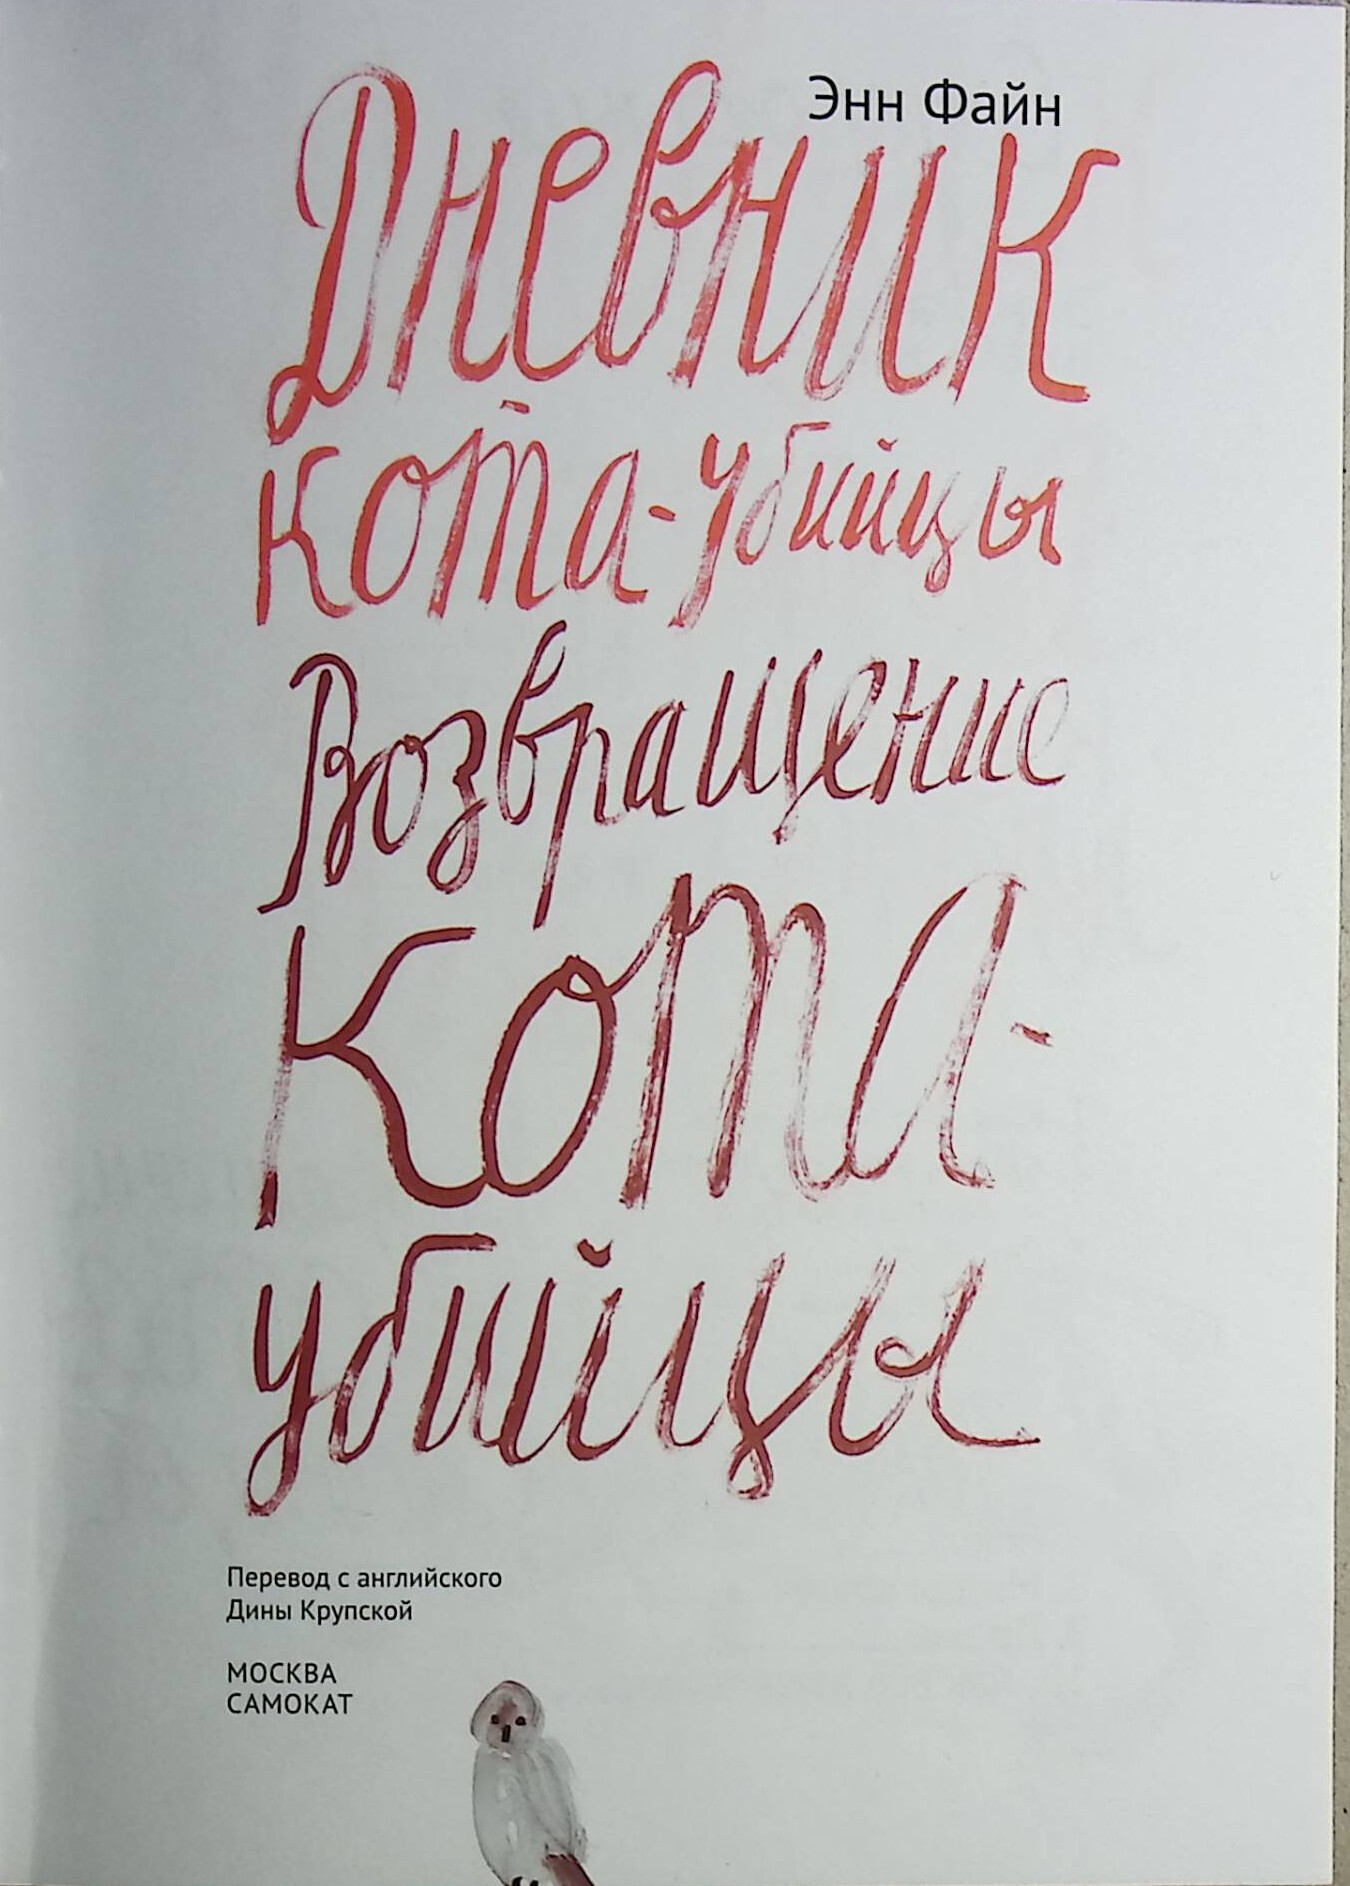 Энн Файн
Дневник
кота-убийцы
Возвращение
кота-
убийцы
Перевод с английского
Дины Крупской
МОСКВА
САМОКАТ